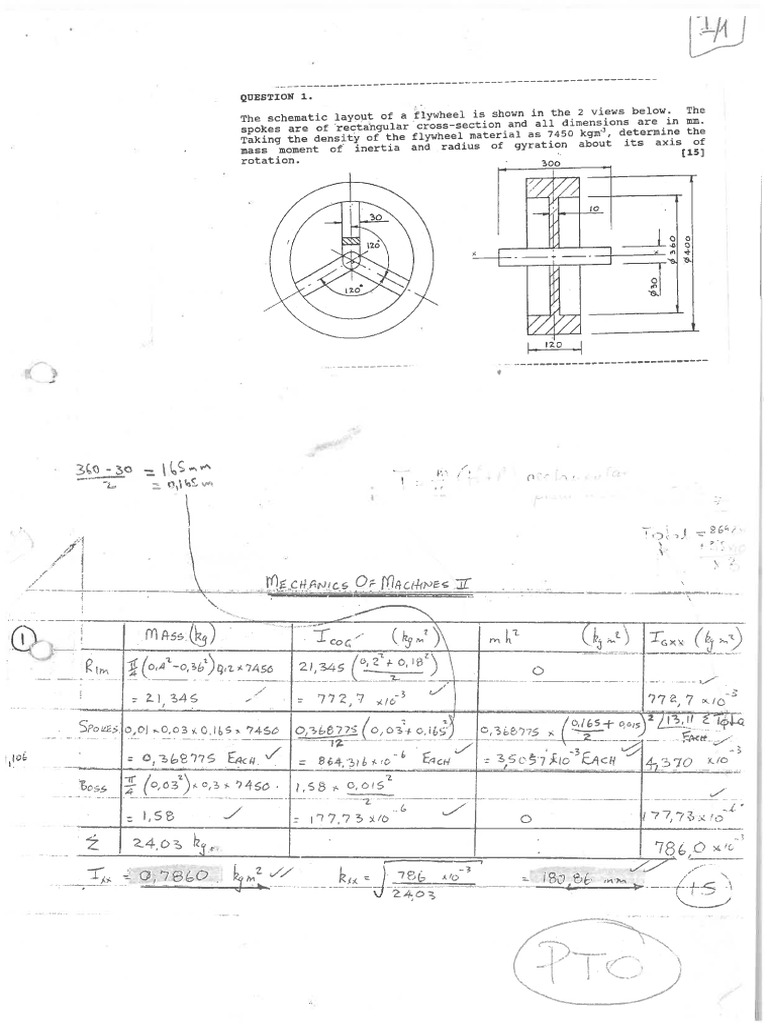 1/1
QUESTION 1.
The schematic layout of a flywheel is shown in the 2 views below. The
spokes are of rectangular cross-section and all dimensions are in mm.
Taking the density of the flywheel material as 7450 kgm⁻³, determine the
mass moment of inertia and radius of gyration about its axis of
rotation. [15]
300
30
10
120°
120°
x x
Ø30
Ø360
Ø400
120
(360-30)/2 = 165mm
= 0,165m
Total = 864
MECHANICS OF MACHINES II
1
MASS (kg) I COG (kg m²) mh² (kg m²) I GXX (kg m²)
RIM π/4 (0,4²-0,36²) 0,12 x 7450 21,345 ((0,2² + 0,18²)/2) 0
= 21,345 = 772,7 x10⁻³ 772,7 x10⁻³
SPOKES 0,01 x 0,03 x 0,165 x 7450 0,368775/12 (0,03² + 0,165²) 0,368775 x ((0,165 + 0,015)/2)² 13,11 Σ Total
EACH
= 0,368775 EACH = 864,316 x10⁻⁶ EACH = 3,5057 x10⁻³ EACH 4,370 x10⁻³
,106
BOSS π/4 (0,03²) x 0,3 x 7450 1,58 x 0,015²/2
= 1,58 = 177,73 x10⁻⁶ 0 177,73 x10⁻⁶
Σ 24,03 kg 786,0 x10⁻³
Ixx = 0,7860 kg m² kxx = √(786 x10⁻³/24,03) = 180,86 mm
15
PTO